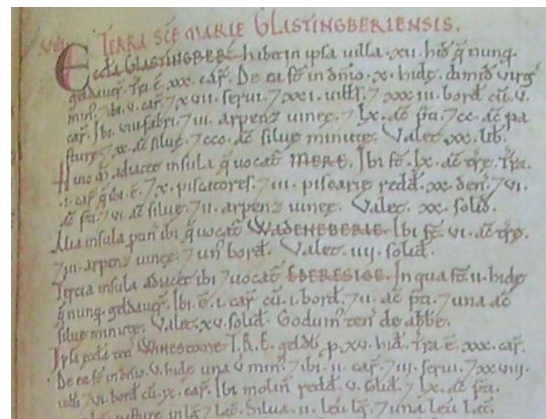 TERRA SCE MARIE GLASTINGBERIENSIS.
Eccla GLASTINGBER' habet in ipsa uilla .xii. hid' q̃ nunq̃
geldauer̃. Tr̃a .ē. xxx. car̃. De ea st̃ in dñio .x. hidę. dimid' uirg'
min'. 7 ibi .v. car̃. 7 xvii. serui. 7 xxi. uill's. 7 xxxiii. bord' cũ .v.
car̃. Ibi viii. fabri. 7 iii. arpenz uineę. 7 lx. ac̃ p̃ti. 7 cc. ac̃ pa
sturę. 7 xx. ac̃ siluę. 7 ccc. ac̃ siluę minutę. Valet xx. lib'.
Huic adiacet insula q̃ uocat' MERE. Ibi st̃ .lx. ac̃ tr̃ę. Tr̃a
.i. car̃ q̃ ibi .ē. 7 x. piscatores. 7 iii. piscarię redd' .xx. den'. 7 vi.
ac̃ p̃ti. 7 vi. ac̃ siluę. 7 ii. arpenz uineę. Valet .xx. solid'.
Alia insula ptin' ibi q̃ uocat' WADENEBERIE. Ibi st̃ .vi. ac̃ tr̃ę.
7 iii. arpenz uineę. 7 un' bord'. Valet .iiii. solid'.
Tercia insula adiacet ibi 7 uocat' EDERESIGE. In qua st̃ .ii. hidę
q̃ nunq̃ geldauer̃. Ibi .ē. i. car̃ cũ .i. bord'. 7 ii. ac̃ p̃ti. 7 una ac̃
siluę minutę. Valet .xv. solid'. Goduin' ten' de abb̃e.
Ipsa eccla ten' WINESCOME. T.R.E. geldb' p .xv. hid'. Tr̃a .ē. xxx. car̃.
De ea st̃ in dñio .v. hidę una v̓ min'. 7 ibi .ii. car̃. 7 iii. serui. 7 xxviii.
uill'i 7 vi. bord' cũ .ix. car̃. Ibi molin' redd' .v. solid'. 7 lx. ac̃ p̃ti.
7 una leu' pasturę in lg̃ 7 lat̃. Silua .ii. leu' lg̃. 7 una leu' lat̃.